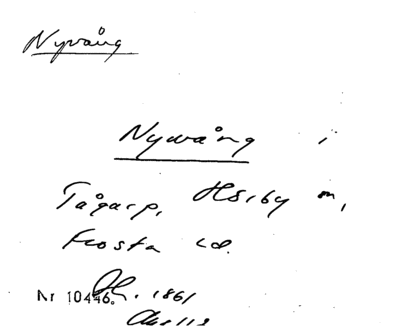 Nyvång
Nyvång i
Tågarp, Hörby m,
Frosta hd.
Nr 10446. 1861